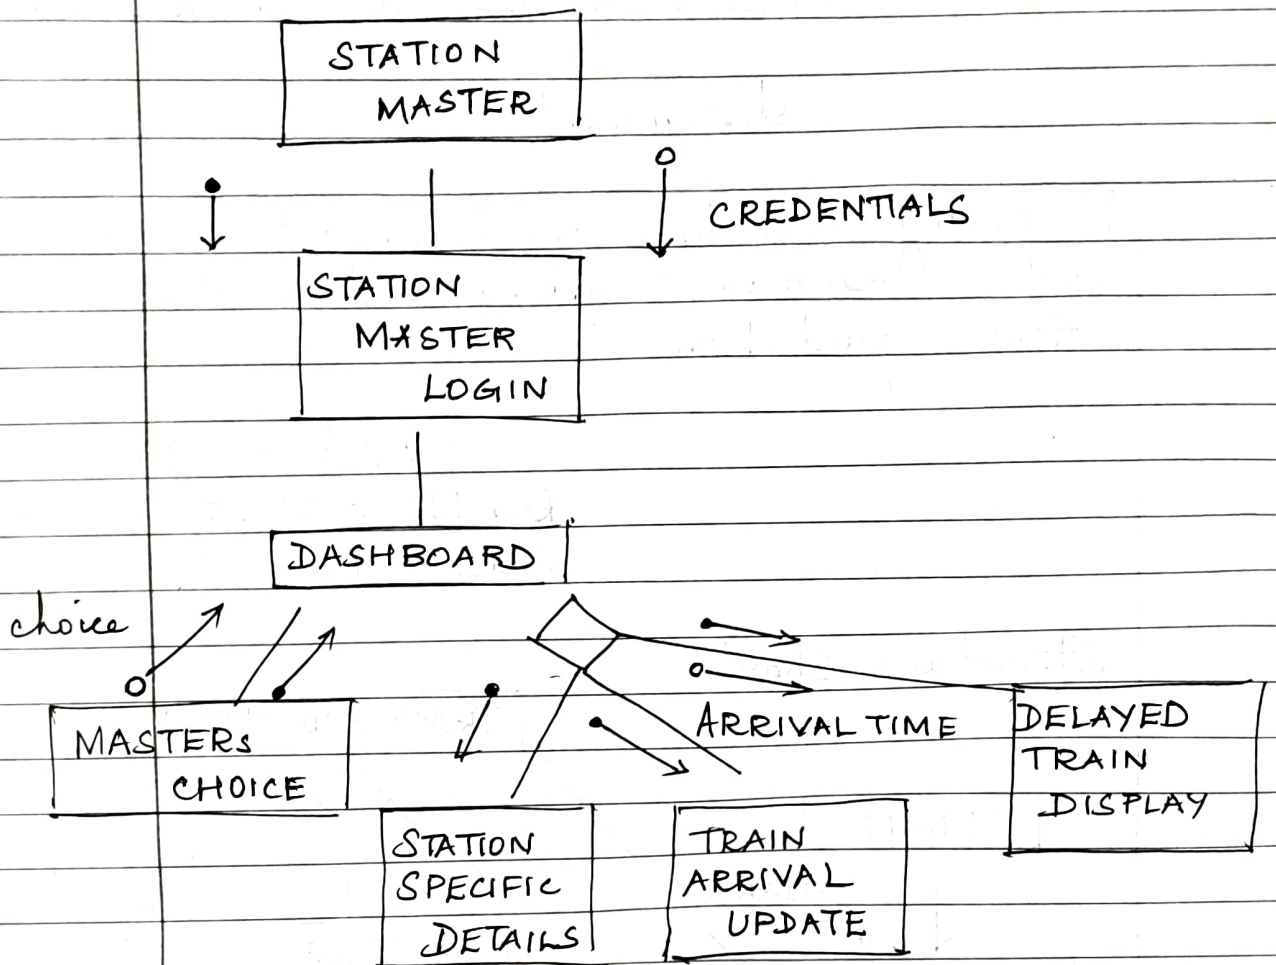 STATION
MASTER
CREDENTIALS
STATION
MASTER
LOGIN
DASHBOARD
choice
MASTERs
CHOICE
ARRIVAL TIME
DELAYED
TRAIN
DISPLAY
STATION
SPECIFIC
DETAILS
TRAIN
ARRIVAL
UPDATE